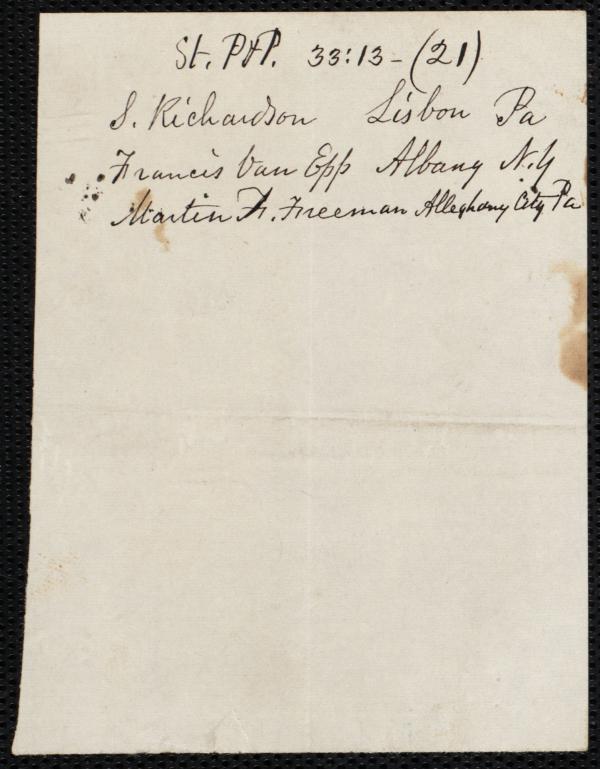 St. P&P. 33:13-(21)
S. Richardson Lisbon Pa
Francis Van Epp Albany N.Y
Martin F. Freeman Alleghany City Pa